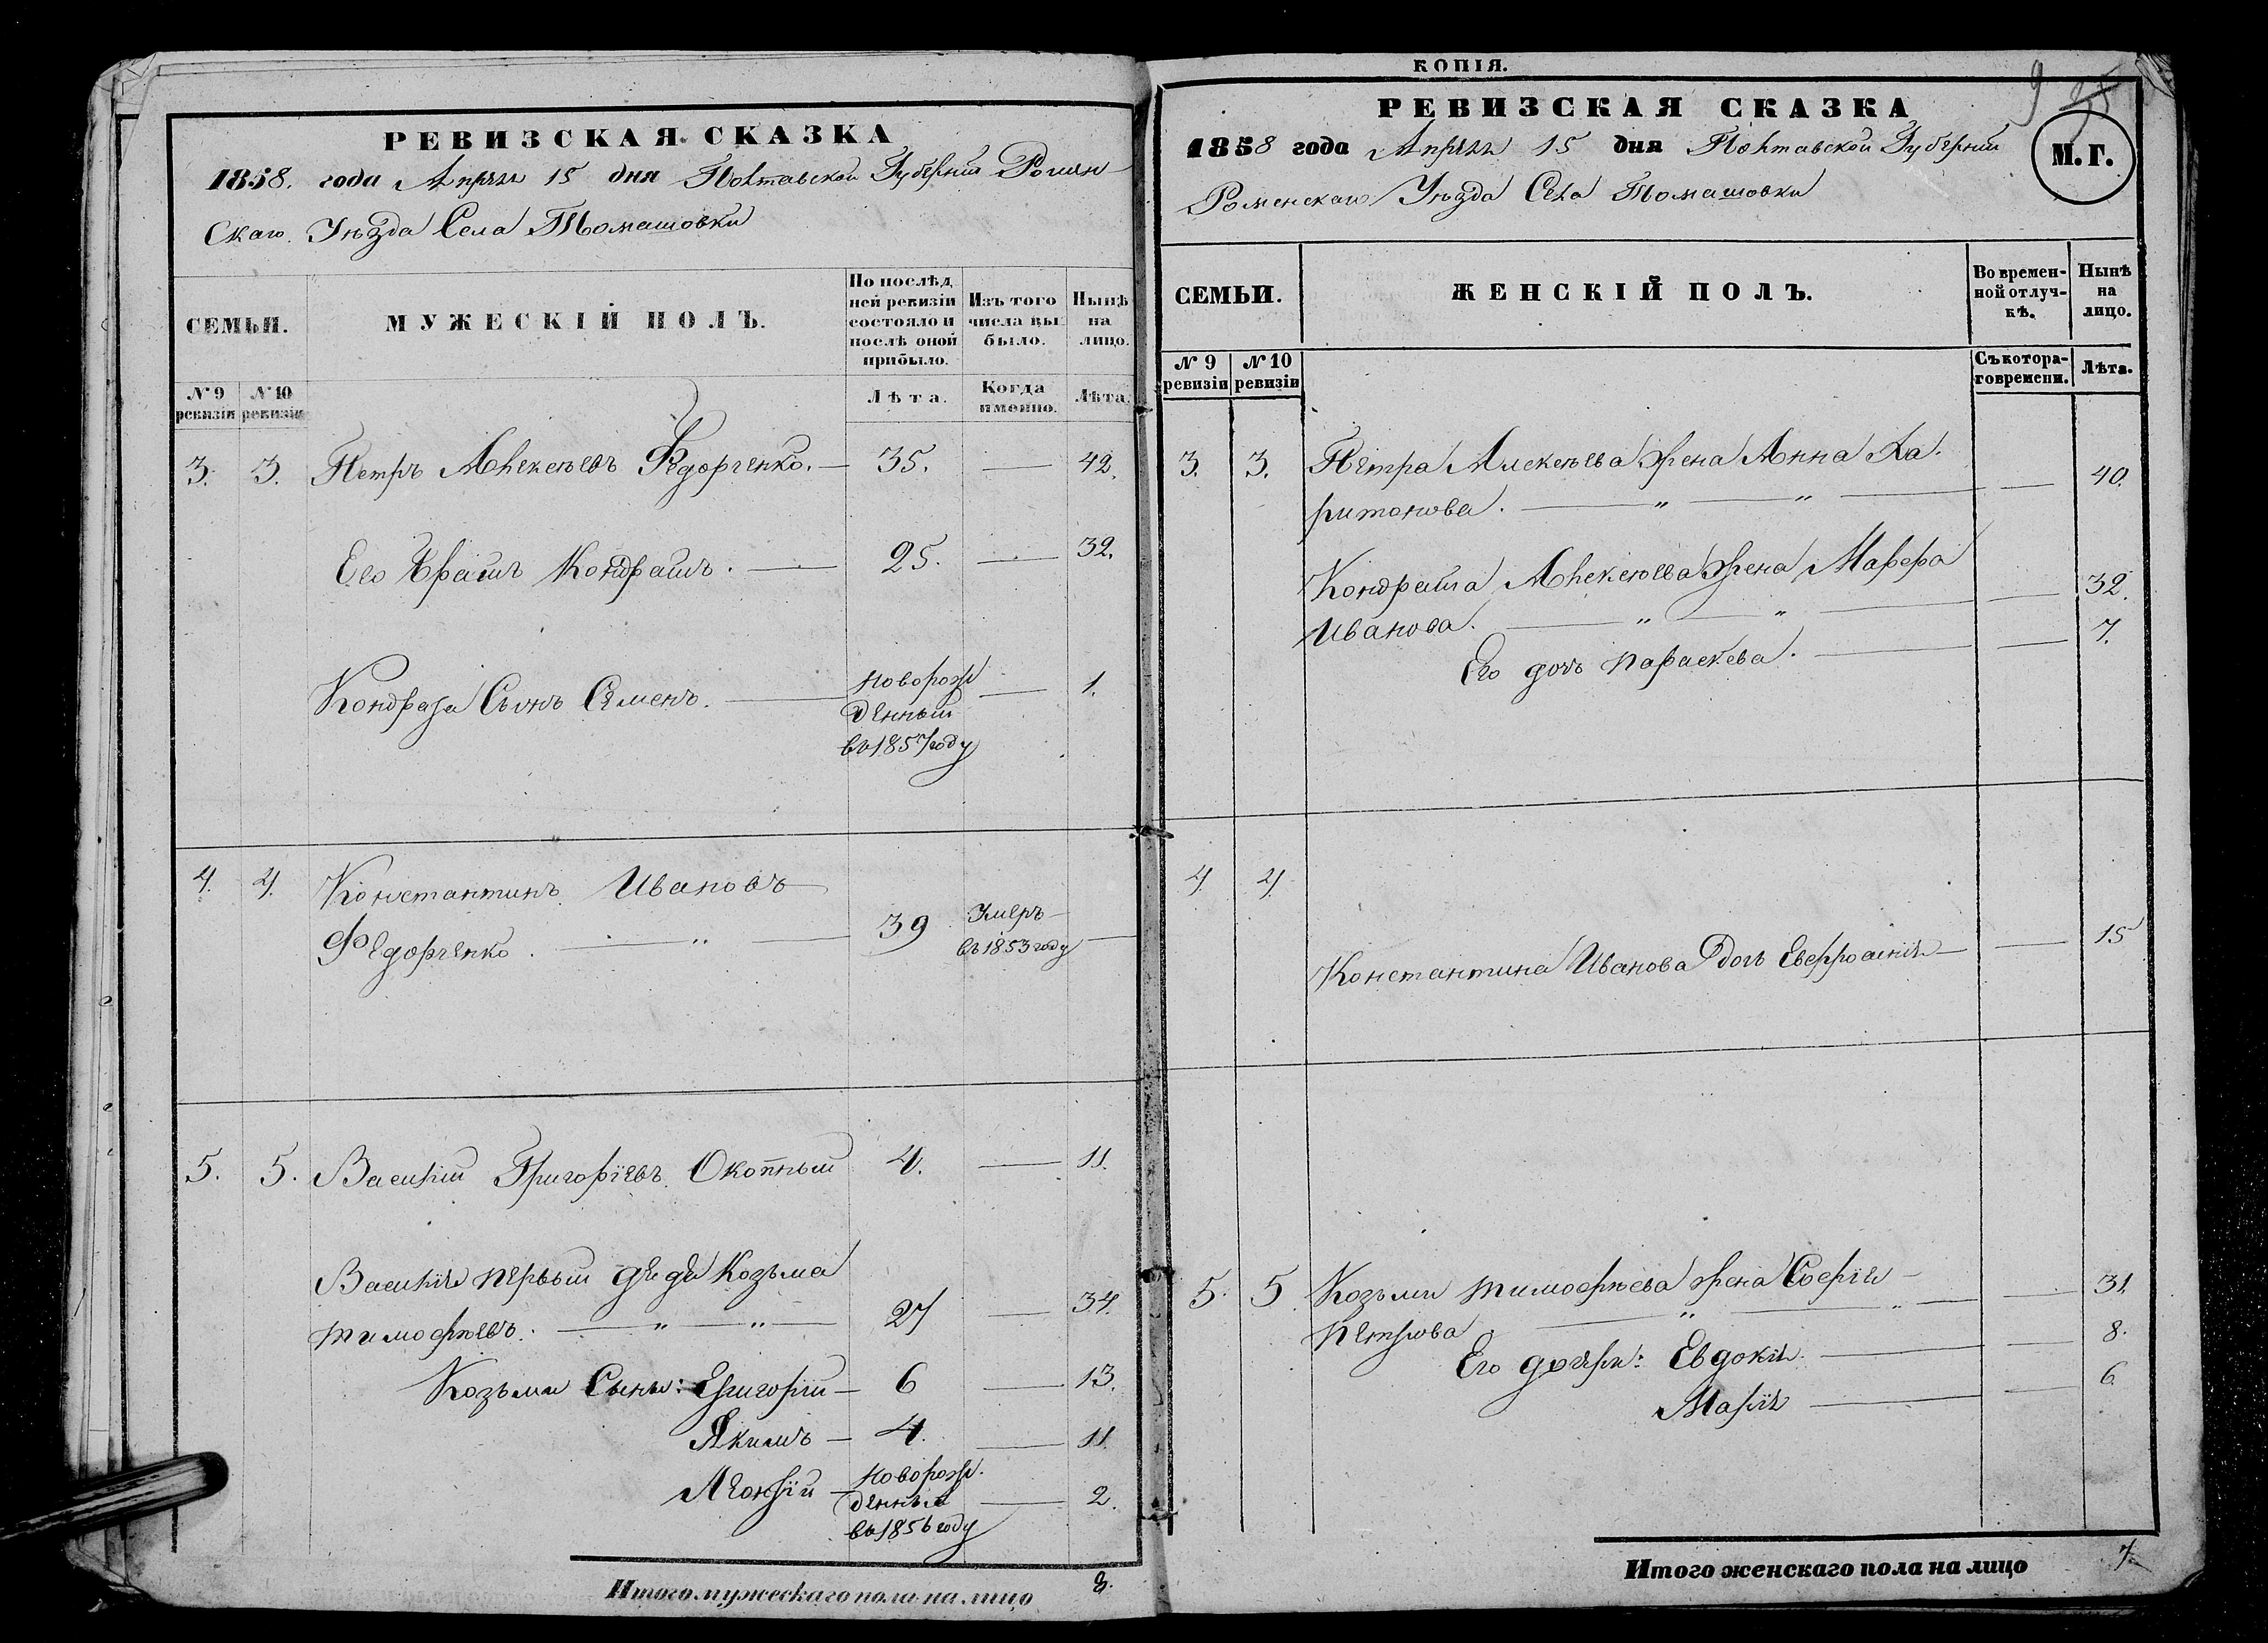 РЕВИЗСКАЯ СКАЗКА
1858. года Апреля 15 дня Полтавской Губернии Ромен
скаго Уѣзда Села Томашовки
СЕМЬИ.
МУЖЕСКІЙ ПОЛЪ.
По послѣд
ней ревизіи
состояло и
послѣ оной
прибыло.
Изъ того
числа вы
было.
Нынѣ
на
лицо.
№ 9
ревизіи
№ 10
ревизіи
Лѣта.
Когда
именно.
Лѣта.
3. 3. Петръ Алексѣевъ Федорченко. — 35. — 42.
Его братъ Кондратъ. — 25. — 32.
Кондрата Сынъ Семенъ. — новорож
денный
въ 1857 году — 1.
4. 4. Константинъ Ивановъ
Федорченко. — " — 39 Умеръ
въ 1853 году —
5. 5. Василій Григоріевъ Окопный 4. — 11.
Василія первый дядя Козьма
Тимофѣевъ. — " — " — 27 — 34.
Козьмы Сыны: Григорій — 6 — 13.
Якимъ — 4. — 11.
Леонтій — новорож.
денный
въ 1856 году — 2.
Итого мужескаго пола на лицо 8.
КОПІЯ.
9
РЕВИЗСКАЯ СКАЗКА
1858 года Апреля 15 дня Полтавской Губернии
Роменскаго Уѣзда Села Томашовки
М. Г.
СЕМЬИ.
ЖЕНСКІЙ ПОЛЪ.
Во времен-
ной отлуч-
кѣ.
Нынѣ
на
лицо.
№ 9
ревизіи
№ 10
ревизіи
Съ котора-
го времени.
Лѣта.
3. 3. Петра Алексѣева жена Анна Ха-
ритонова. — " — " — 40.
Кондрата Алексѣева жена Марфа
Иванова. — " — " — 32.
Его дочь Параскева. — 7.
4. 4.
Константина Иванова Дочь Евфросинія — 15
5. 5. Козьмы Тимофѣева жена Софія —
Петрова — " — " — 31.
Его дочери: Евдокія — 8.
Марія — 6
Итого женскаго пола на лицо 7.